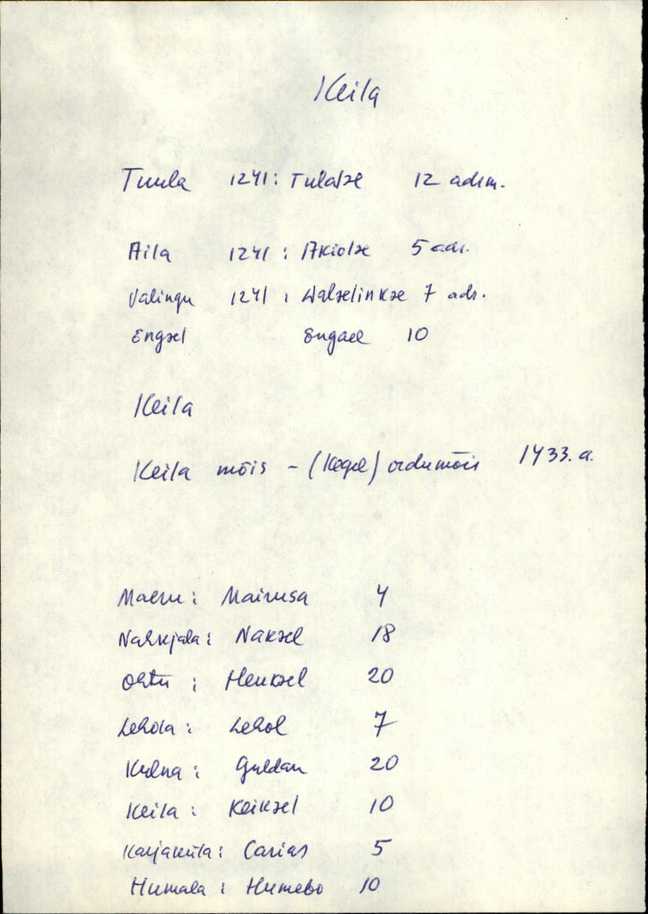 Keila
Tuula 1241: Tulalxe 12 adrm.
Aila 1241: Akiolxe 5 adr.
Valingu 1241: Walxelinkxe 7 adr.
Engxel Engael 10
Keila
Keila mõis - (Kegel) ordumõis 1433. a.
Maeru: Mairusa 4
Nahkjala: Nakxel 18
Ohtu: Henkxel 20
Lehola: Lehol 7
Kulna: Guldan 20
Keila: Keikxel 10
Karjaküla: Carias 5
Humala: Humebo 10